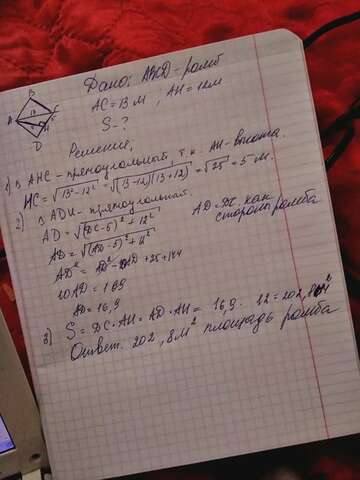 Дано: ABCD - ромб
AC = 13 м, AH = 12 м
S - ?
Решение:
1) △ AHC - прямоугольный, т.к. AH - высота.
HC = √13² - 12² = √(13 - 12)(13 + 12) = √25 = 5 м.
2) △ ADH - прямоугольный.
AD = √(DC - 5)² + 12²
AD = DC как стороны ромба
AD = √(AD - 5)² + 12²
AD² = AD² - 10AD + 25 + 144
10AD = 169
AD = 16,9
3) S = DC · AH = AD · AH = 16,9 · 12 = 202,8 м²
Ответ. 202,8 м² площадь ромба
B
A
C
H
D
13